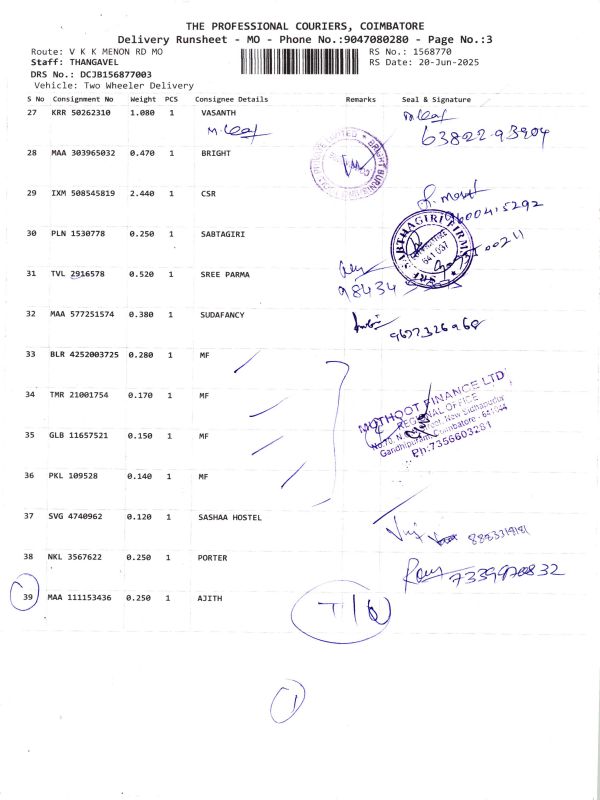 THE PROFESSIONAL COURIERS, COIMBATORE
Delivery Runsheet - MO - Phone No.:9047080280 - Page No.:3
Route: V K K MENON RD MO
RS No.: 1568770
Staff: THANGAVEL
RS Date: 20-Jun-2025
DRS No.: DCJB156877003
Vehicle: Two Wheeler Delivery
S No Consignment No Weight PCS Consignee Details Remarks Seal & Signature
27 KRR 50262310 1.080 1 VASANTH
M. Leaf
M. Leaf
63822-93904
28 MAA 303965032 0.470 1 BRIGHT
29 IXM 508545819 2.440 1 CSR
9600415292
30 PLN 1530778 0.250 1 SABTAGIRI
SRI SABTHAGIRI FIRMS
641 037
31 TVL 2916578 0.520 1 SREE PARMA
98434
00211
32 MAA 577251574 0.380 1 SUDAFANCY
9697326968
33 BLR 4252003725 0.280 1 MF
34 TMR 21001754 0.170 1 MF
MUTHOOT FINANCE LTD
REGIONAL OFFICE
Gandhipuram, Coimbatore - 641044
Ph:7356603281
35 GLB 11657521 0.150 1 MF
36 PKL 109528 0.140 1 MF
37 SVG 4740962 0.120 1 SASHAA HOSTEL
38 NKL 3567622 0.250 1 PORTER
39 MAA 111153436 0.250 1 AJITH
1